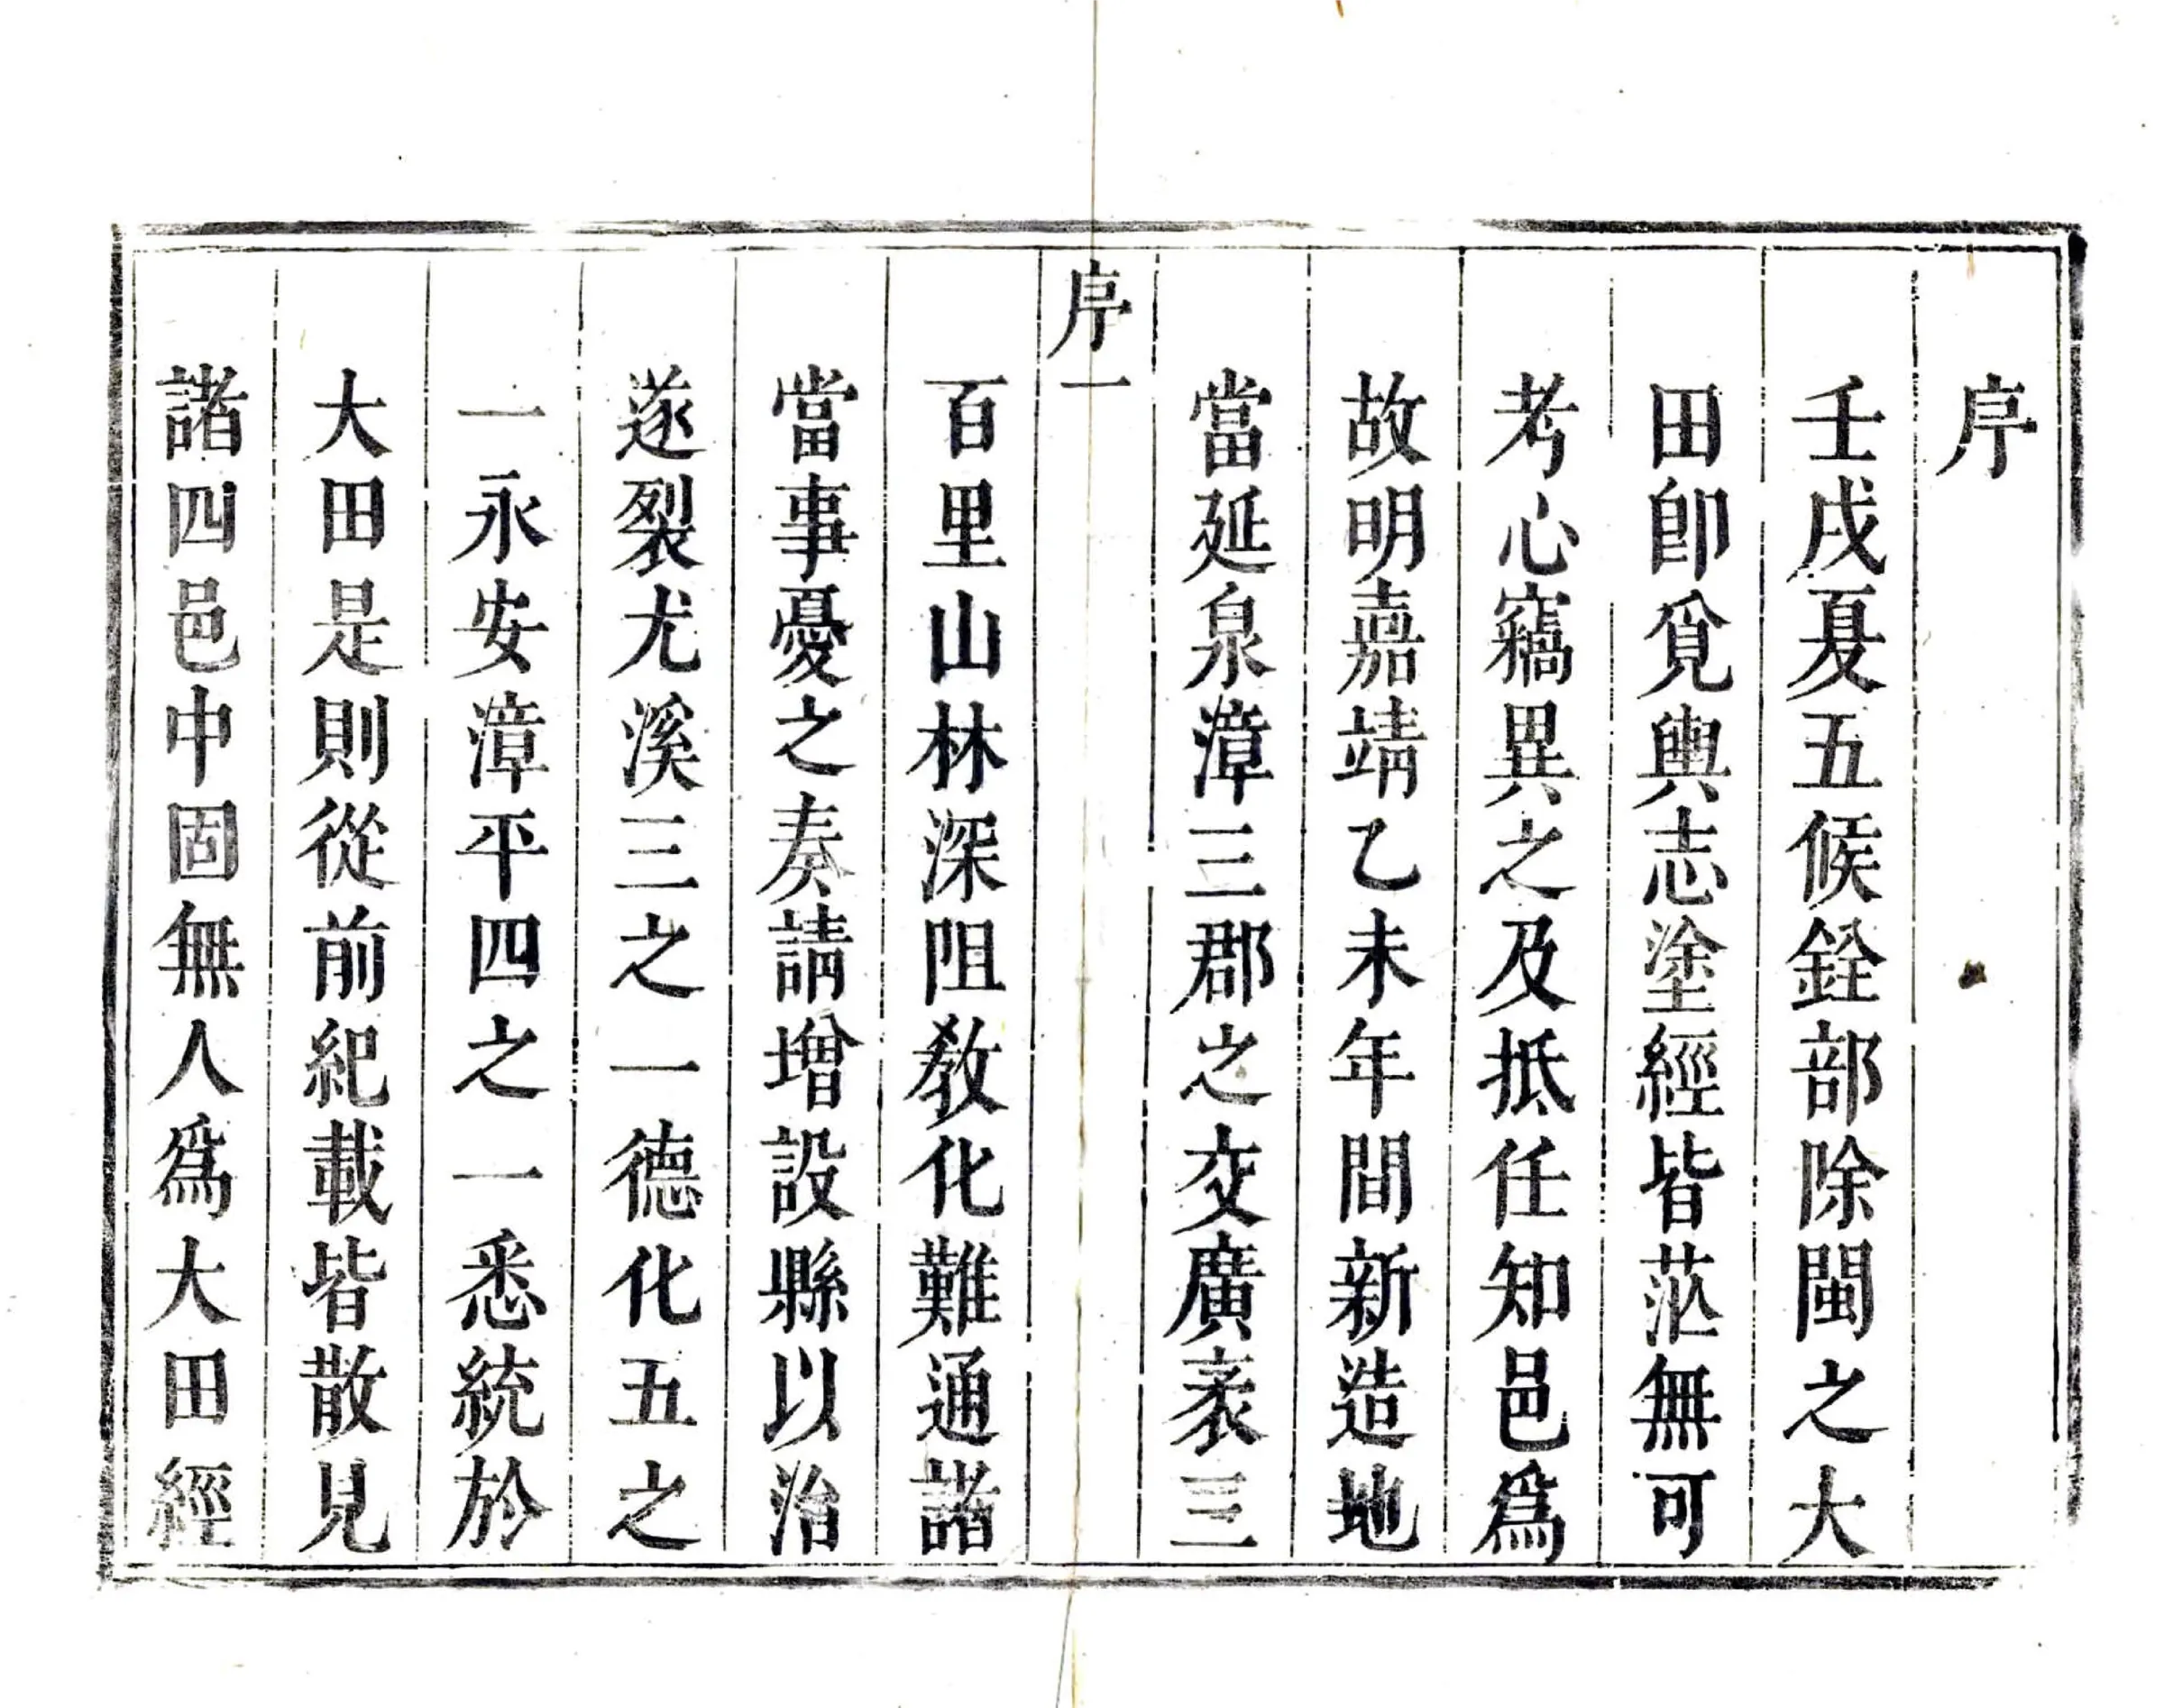 序
壬戌夏五候銓部除閩之大
田卽覓輿志塗經皆茫無可
考心竊異之及抵任知邑爲
故明嘉靖乙未年間新造地
當延泉漳三郡之交廣袤三
序一
百里山林深阻敎化難通諸
當事憂之奏請增設縣以治
遂裂尤溪三之一德化五之
一永安漳平四之一悉統於
大田是則從前紀載皆散見
諸四邑中固無人爲大田經